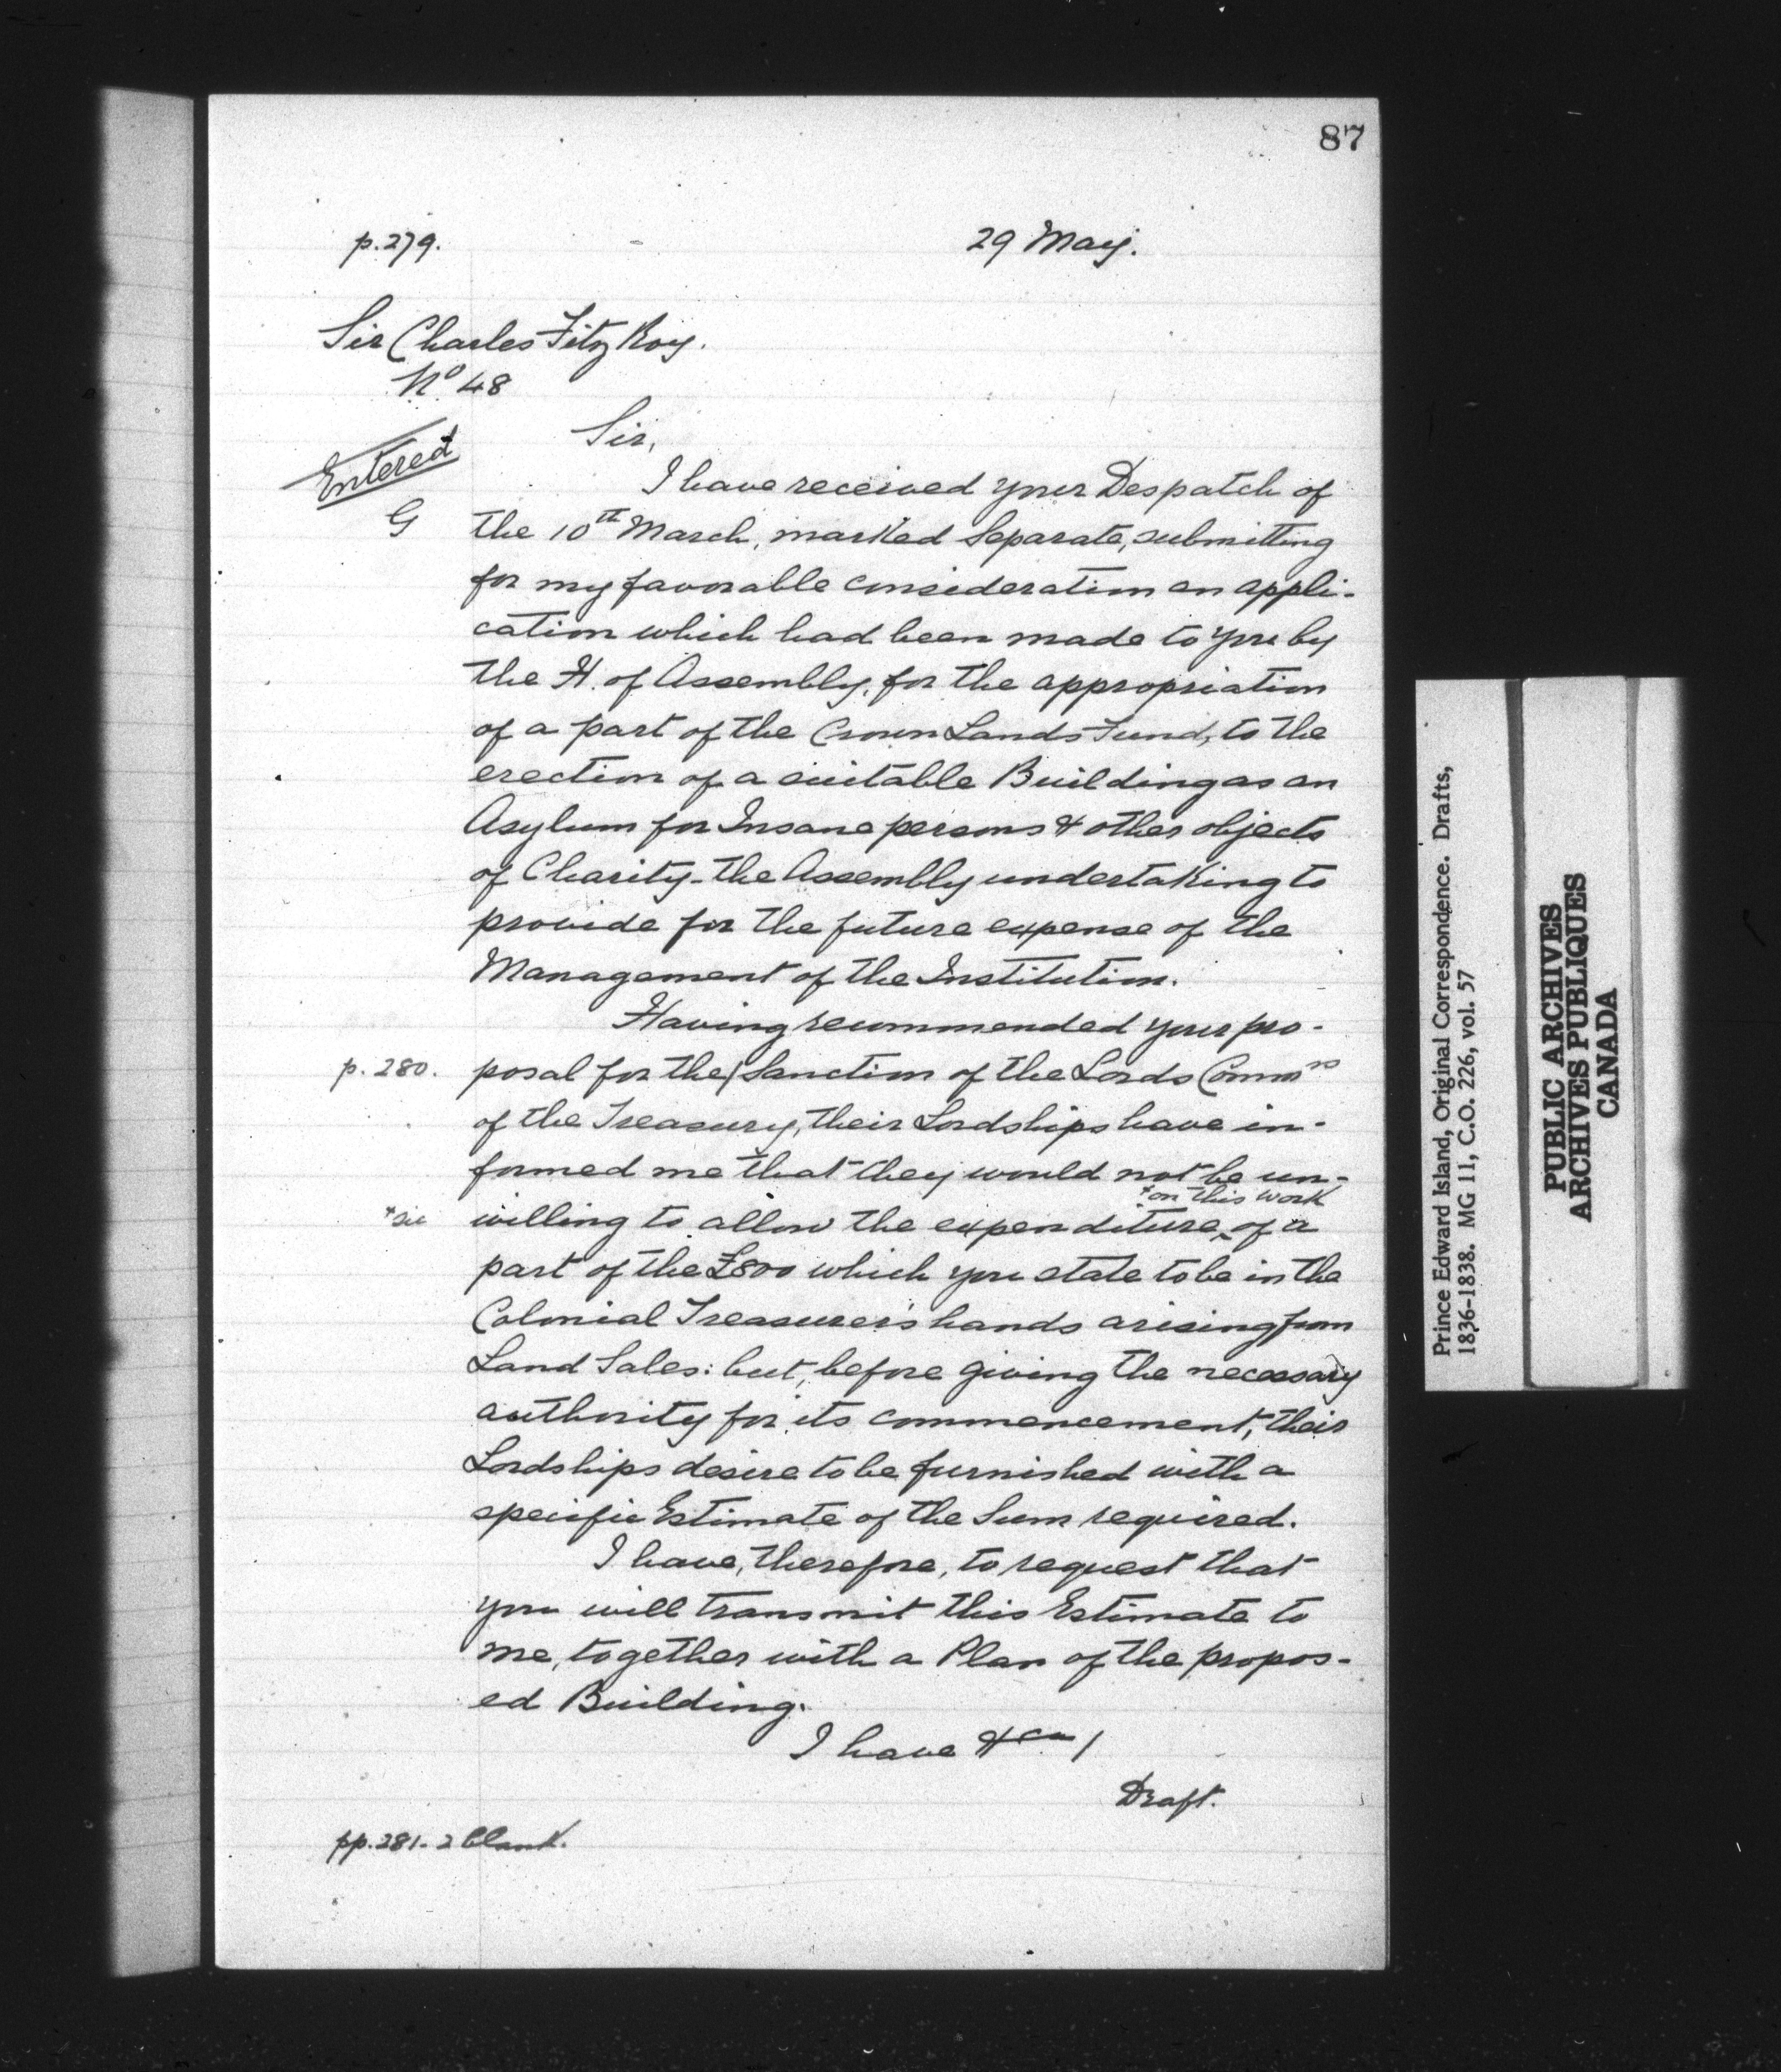 87
p. 279.
29 May.
Sir Charles Fitz Roy.
No 48
Sir,
Entered
I have received your Despatch of
G
the 10th March, marked Separate, submitting
for my favorable consideration an appli-
cation which had been made to you by
the H. of Assembly, for the appropriation
of a part of the Crown Lands Fund, to the
erection of a suitable Building as an
Asylum for Insane persons & other objects
of Charity - the Assembly undertaking to
provide for the future expense of the
Management of the Institution.
Having recommended your pro-
p. 280.
posal for the / Sanction of the Lords Commrs
of the Treasury, their Lordships have in-
formed me that they would not be un-
*on this work
*sic
willing to allow the expenditure ‸ of a
part of the £800 which you state to be in the
Colonial Treasurer's hands arising from
Land Sales: but, before giving the necessary
authority for its commencement, their
Lordships desire to be furnished with a
specific Estimate of the Sum required.
I have, therefore, to request that
you will transmit this Estimate to
me, together with a Plan of the propos-
ed Building.
I have &ca /
Draft.
pp. 281-2 blank.
Prince Edward Island, Original Correspondence. Drafts,
1836-1838. MG 11, C.O. 226, vol. 57
PUBLIC ARCHIVES
ARCHIVES PUBLIQUES
CANADA